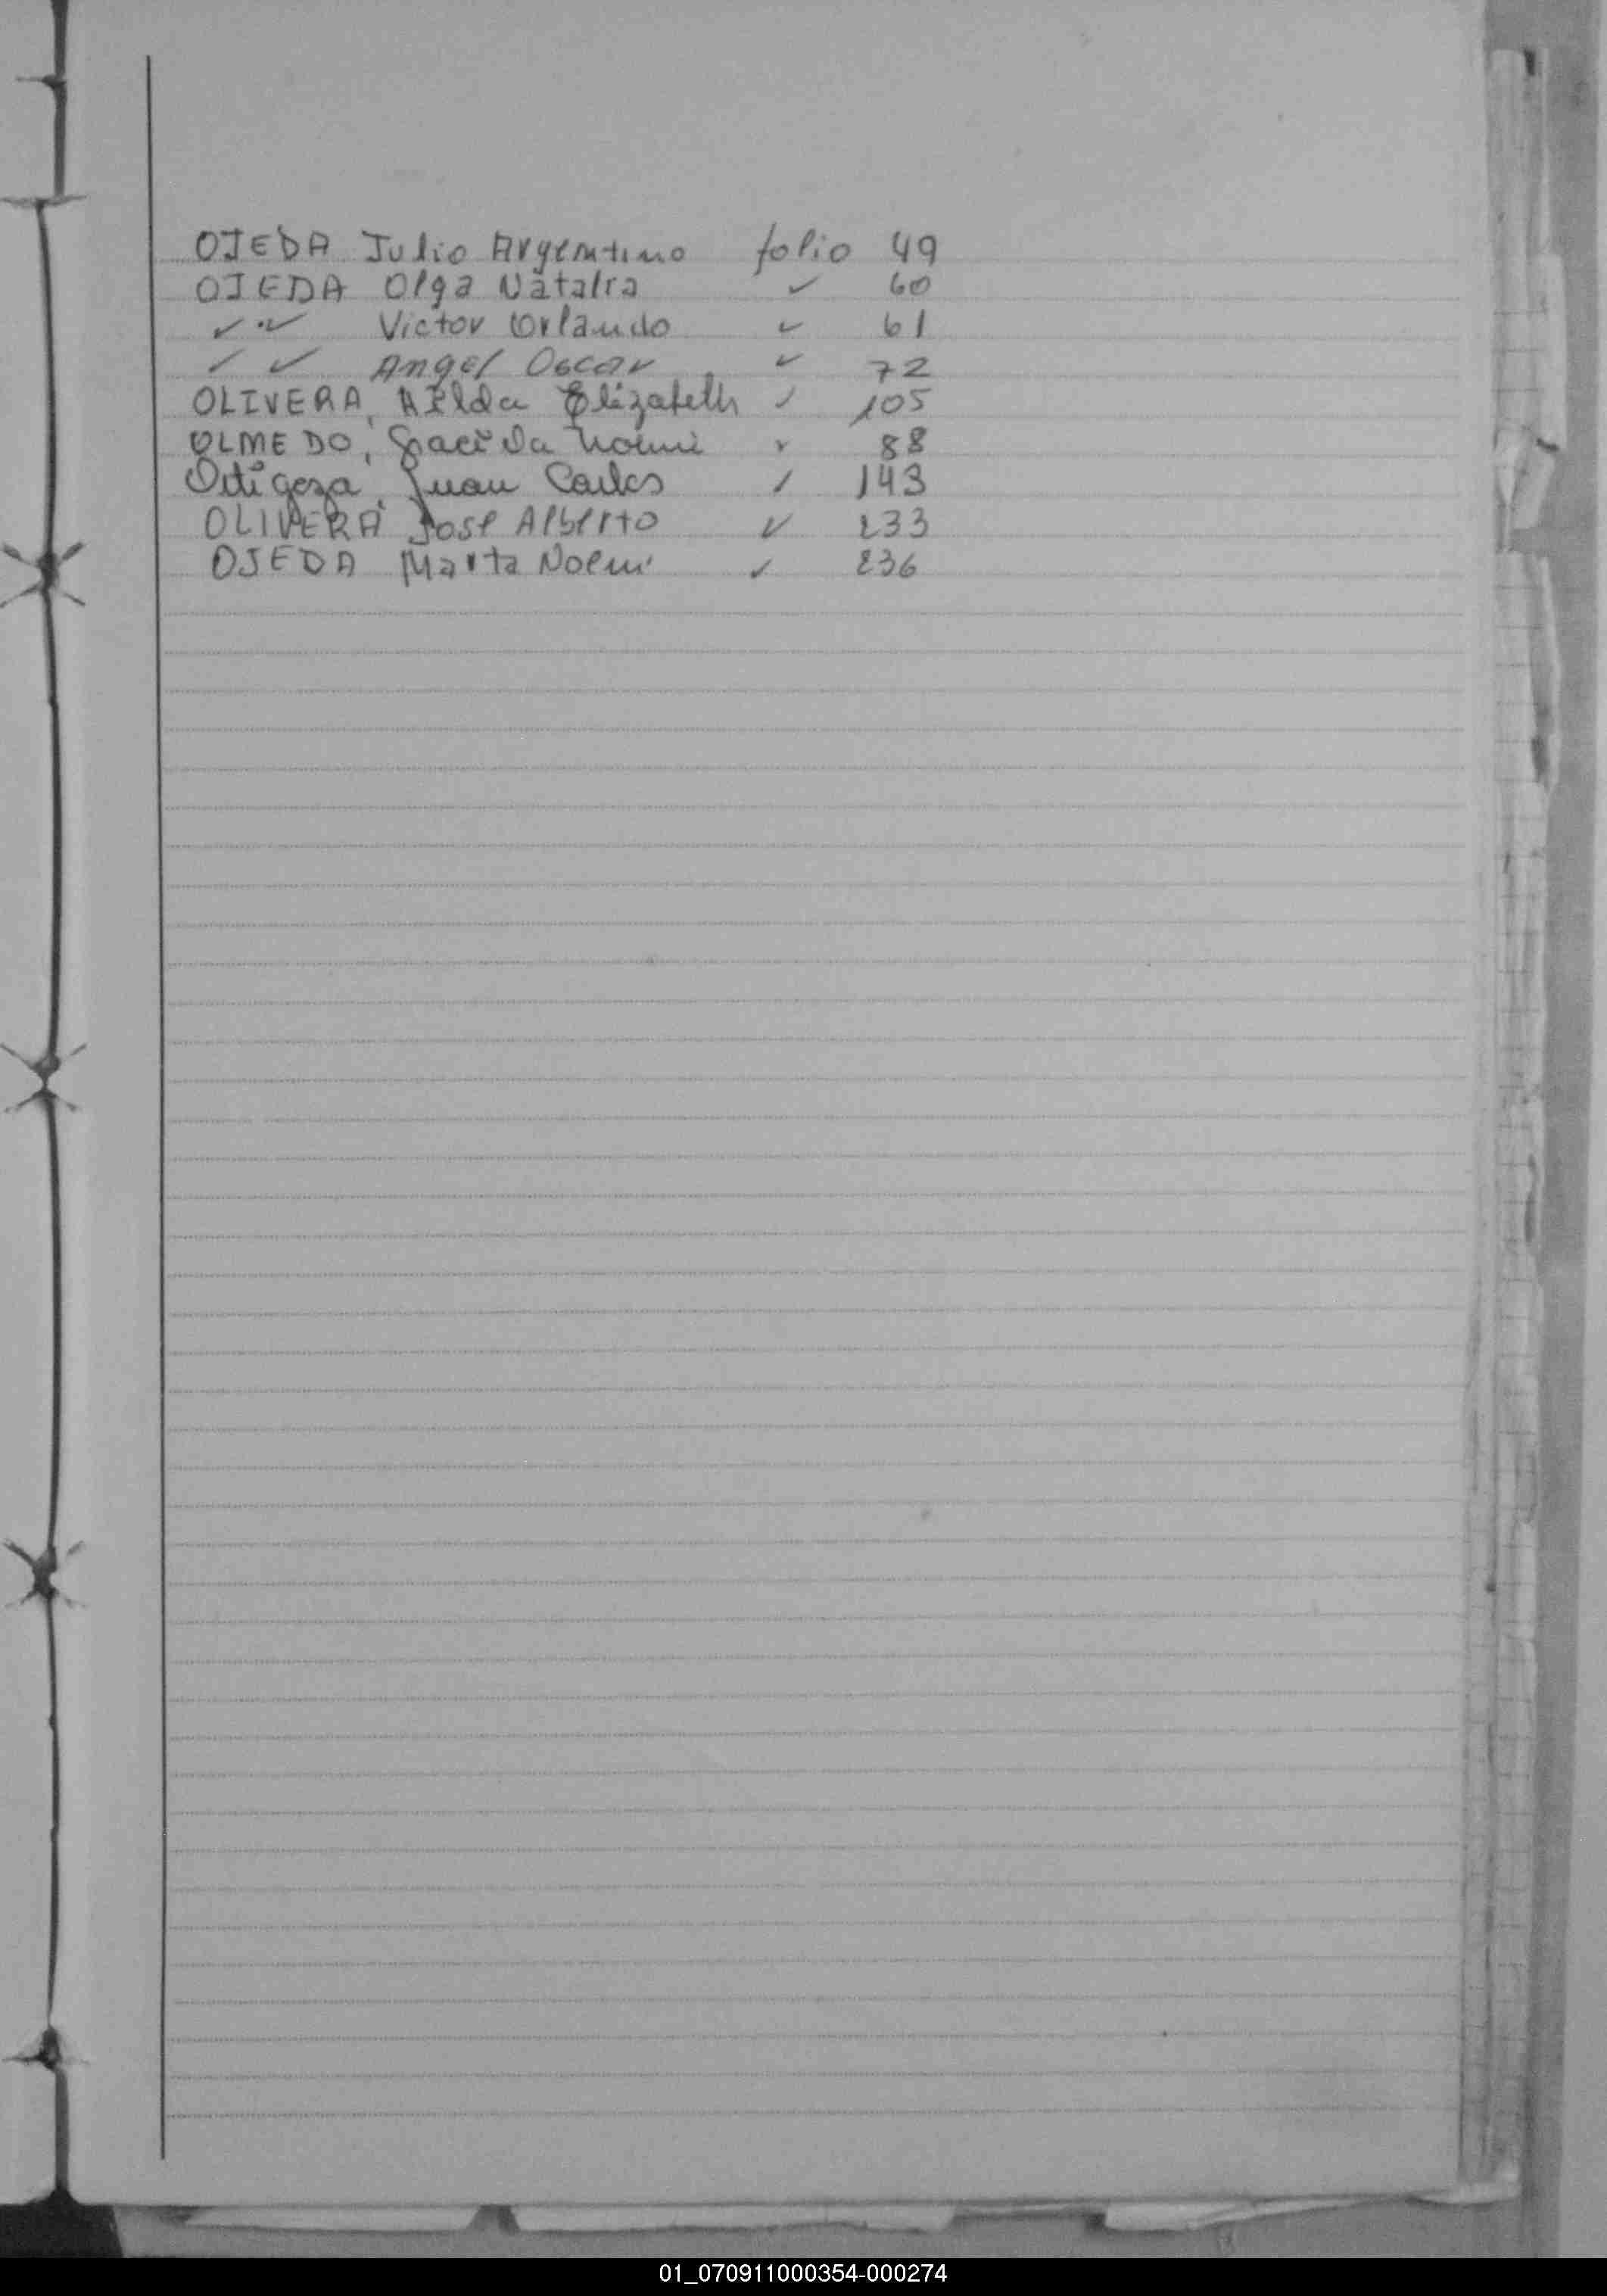 OJEDA Julio Argentino folio 49
OJEDA Olga Natalia ✓ 60
✓ ✓ Victor Orlando ✓ 61
✓ ✓ Angel Oscar ✓ 72
OLIVERA, Hilda Elizabeth ✓ 105
OLMEDO, Noemi ✓ 88
Ortigoza, Juan Carlos ✓ 143
OLIVERA Jose Alberto ✓ 233
OJEDA Marta Noemi ✓ 236
01_070911000354-000274